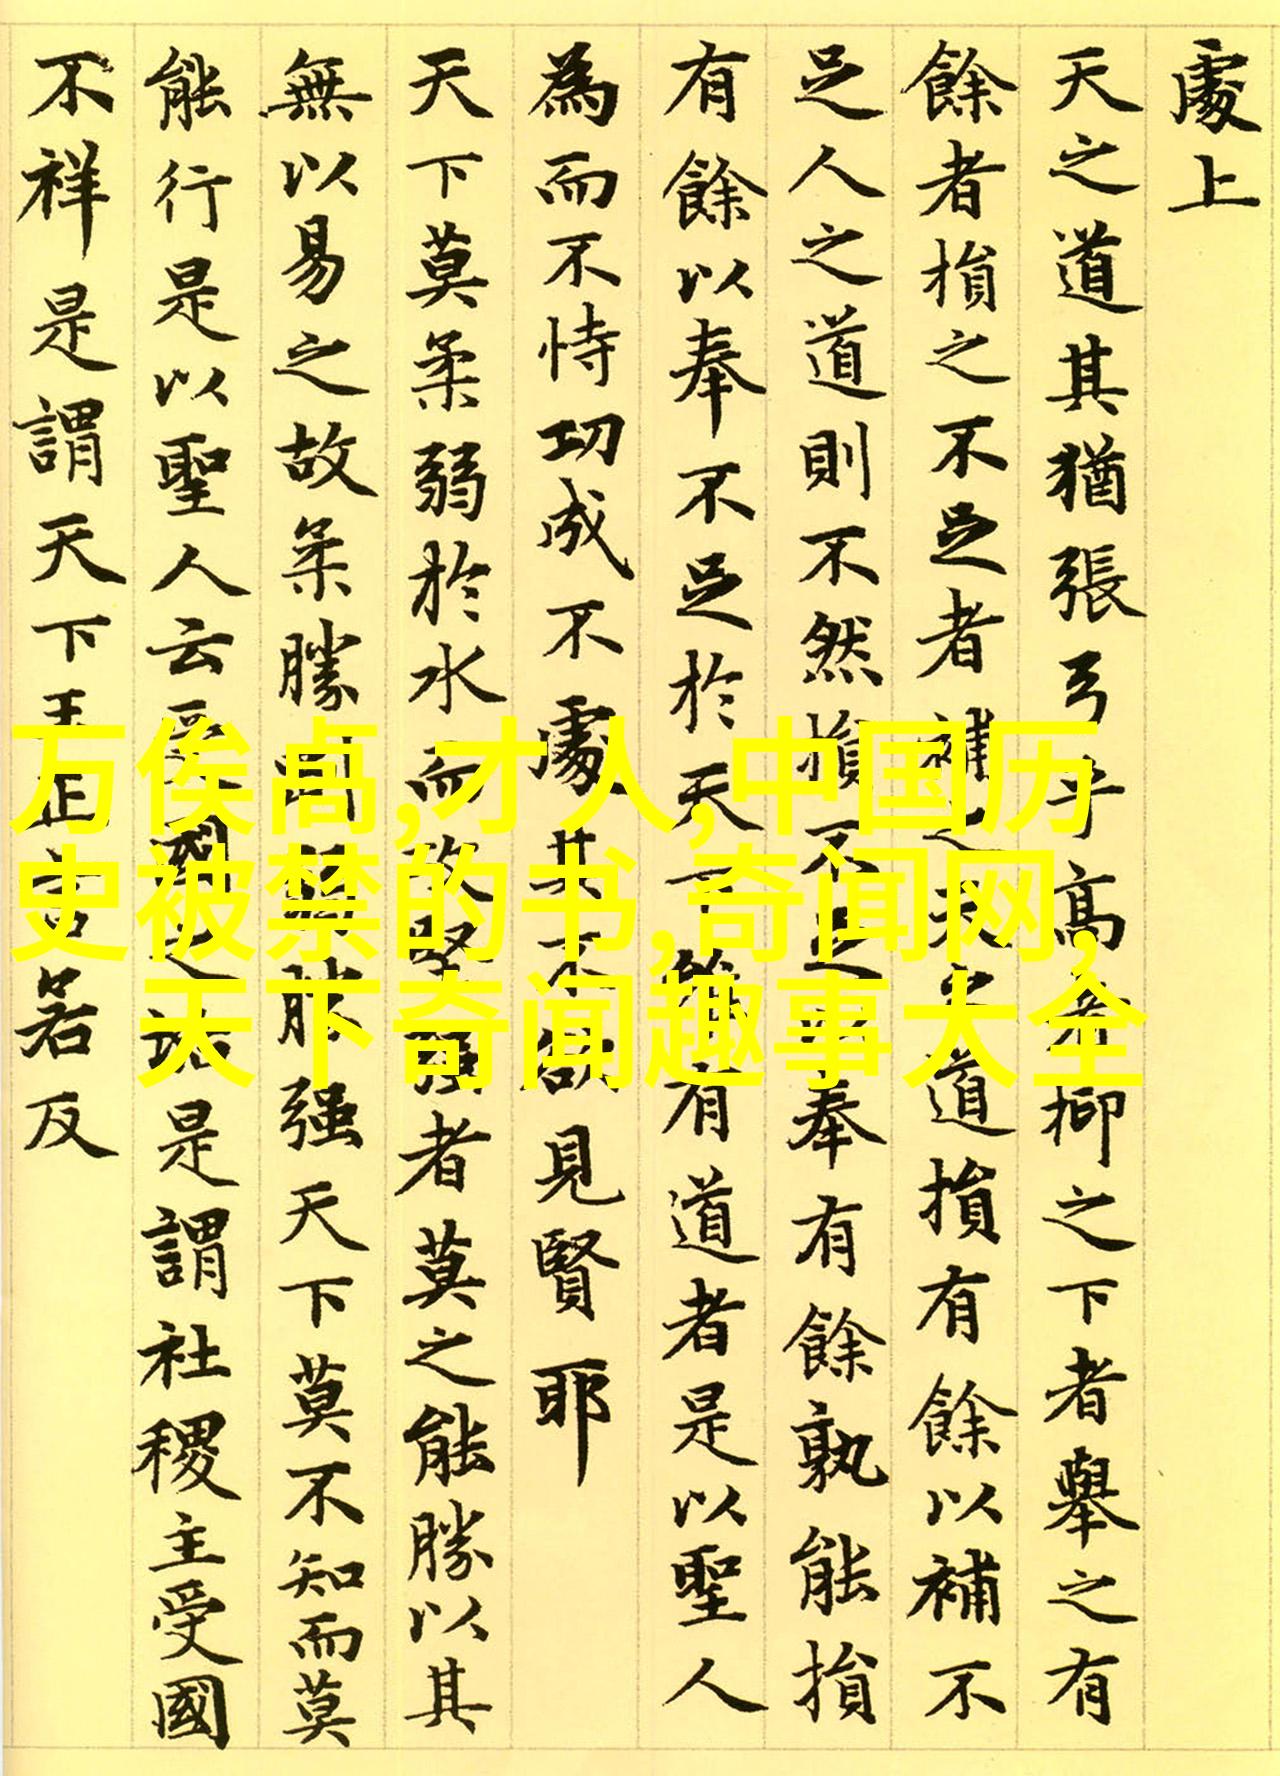 處上
天之道其猶張弓乎高者抑之下者舉之有
餘者損之不足者補之天之道損有餘以補不
足人之道則不然損不足以奉有餘孰能損
有餘以奉不足於天下有道者是以聖人
為而不恃功成不處其不欲見賢耶
天下莫柔弱於水而攻堅强者莫之能勝以其
無以易之故柔勝剛弱勝强天下莫不知而莫
能行是以聖人云受國之垢是謂社稷主受國
不祥是謂天下王正言若反
万俟卨,才人,中国历
史被禁的书,奇闻网,
天下奇闻趣事大全